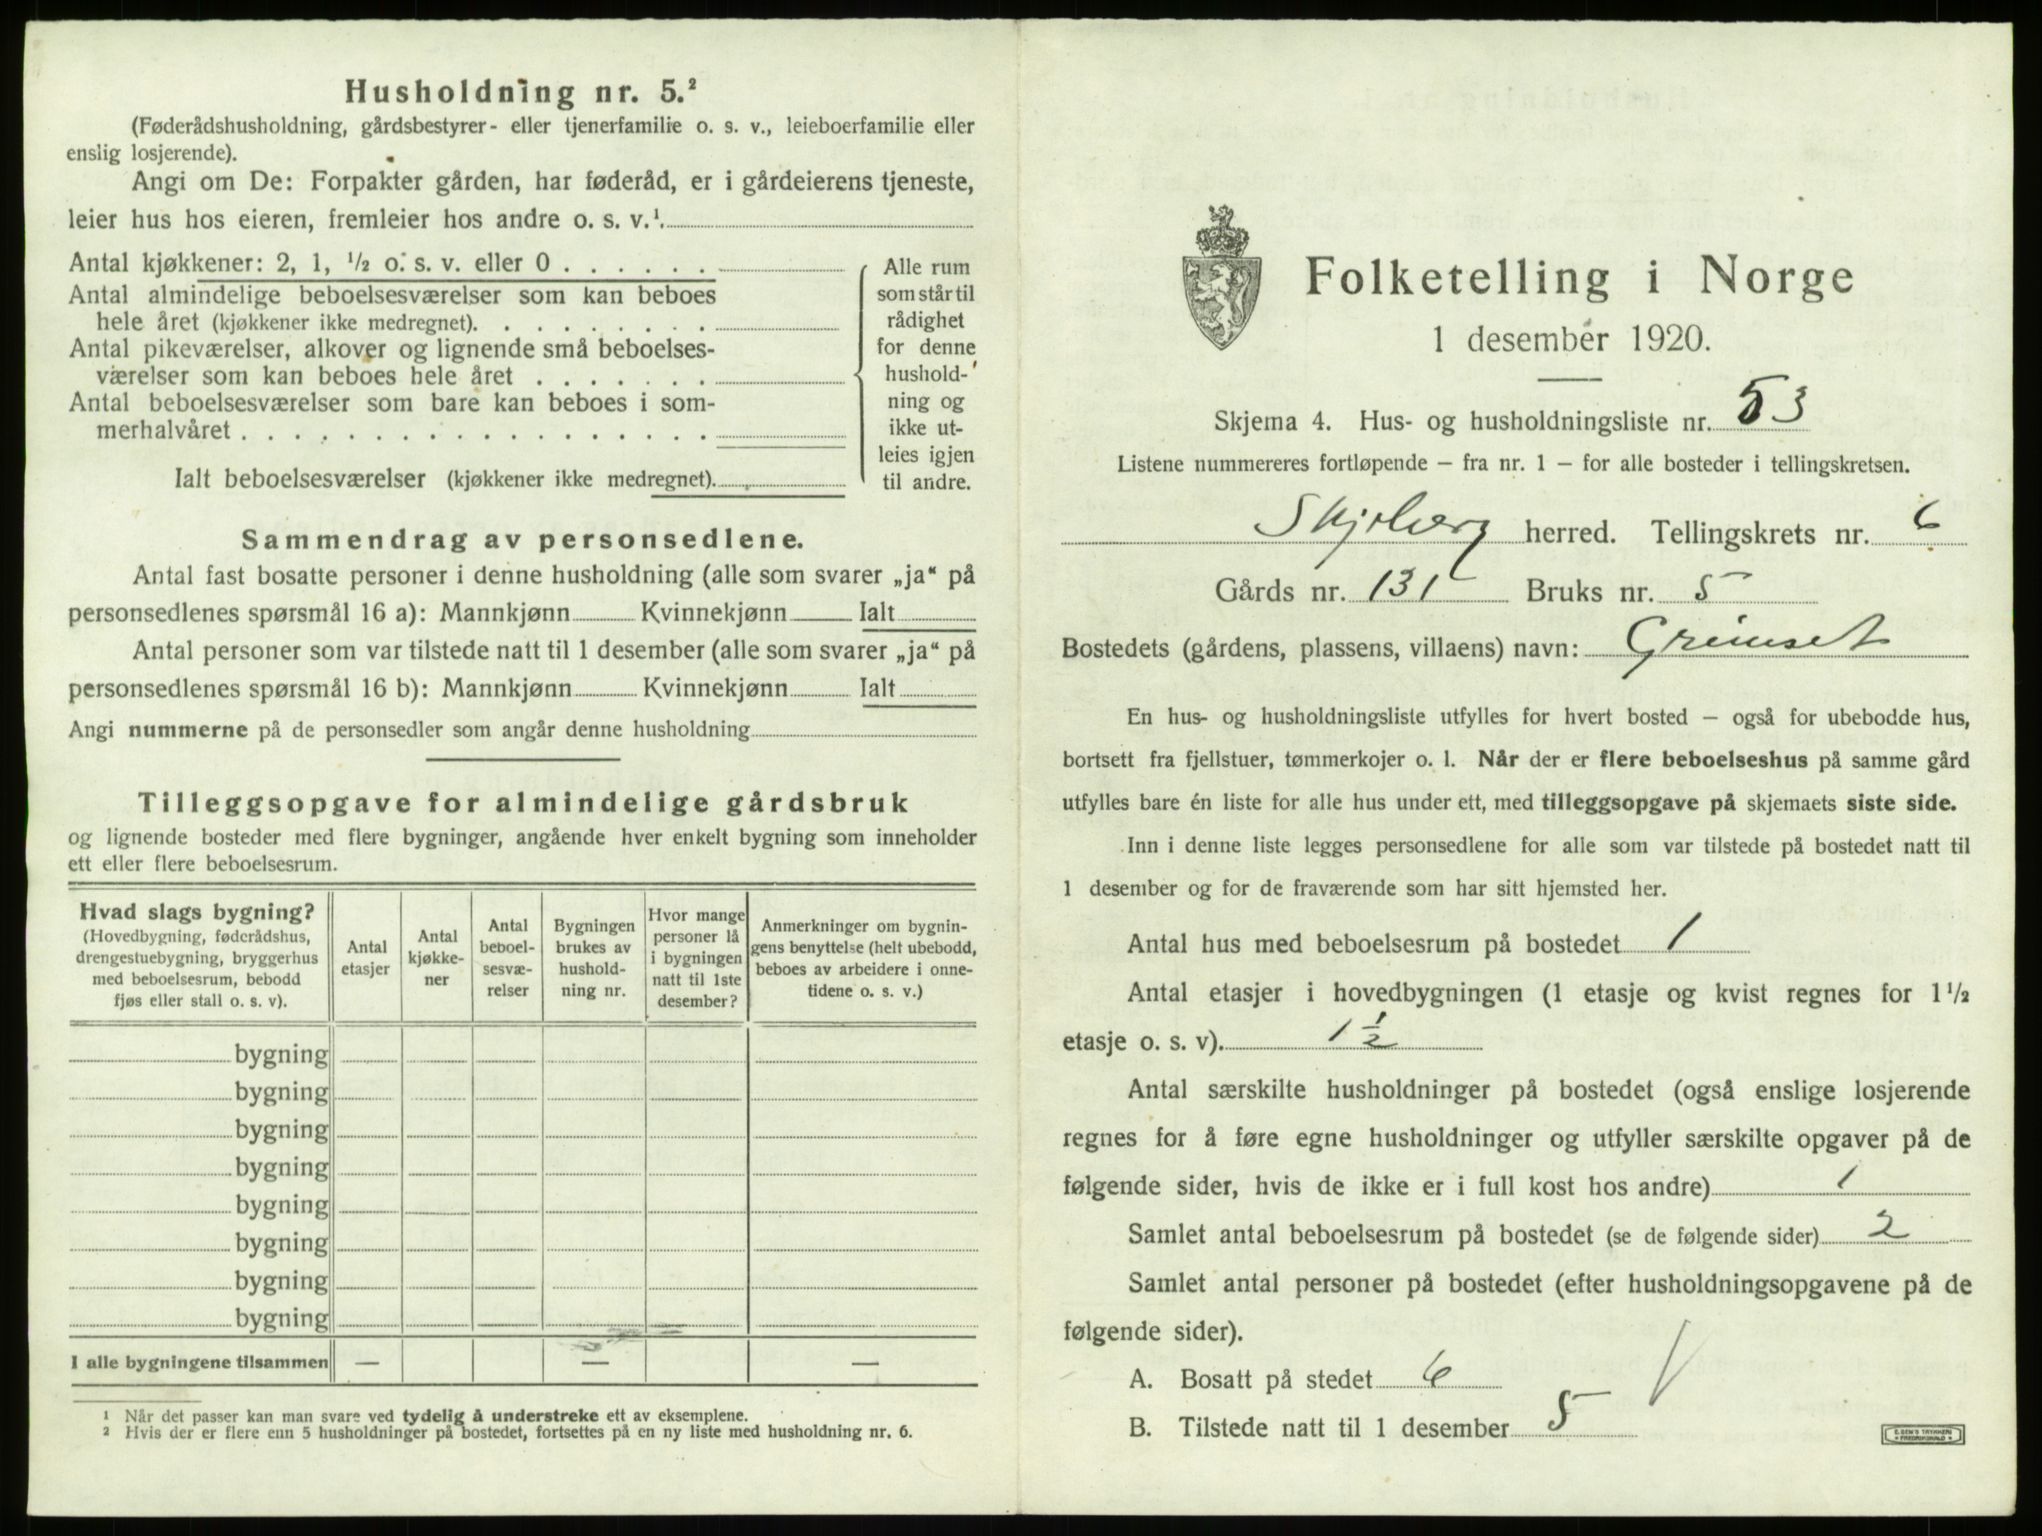 Husholdning nr. 5.²
(Føderådshusholdning, gårdsbestyrer- eller tjenerfamilie o. s. v., leieboerfamilie eller
enslig losjerende).
Angi om De: Forpakter gården, har føderåd, er i gårdeierens tjeneste,
leier hus hos eieren, fremleier hos andre o. s. v.¹.
Antal kjøkkener: 2, 1, ½ o. s. v. eller 0 . . . . . .
Antal almindelige beboelsesværelser som kan beboes
hele året (kjøkkener ikke medregnet). . . . . . . . .
Antal pikeværelser, alkover og lignende små beboelses-
værelser som kan beboes hele året . . . . . . .
Antal beboelsesværelser som bare kan beboes i som-
merhalvåret . . . . . . . . . . . . . . . . . .
Ialt beboelsesværelser (kjøkkener ikke medregnet).
Alle rum
som står til
rådighet
for denne
hushold-
ning og
ikke ut-
leies igjen
til andre.
Sammendrag av personsedlene.
Antal fast bosatte personer i denne husholdning (alle som svarer „ja“ på
personsedlenes spørsmål 16 a): Mannkjønn Kvinnekjønn Ialt
Antal personer som var tilstede natt til 1 desember (alle som svarer „ja“ på
personsedlenes spørsmål 16 b): Mannkjønn Kvinnekjønn Ialt
Angi nummerne på de personsedler som angår denne husholdning
Tilleggsopgave for almindelige gårdsbruk
og lignende bosteder med flere bygninger, angående hver enkelt bygning som inneholder
ett eller flere beboelsesrum.
Hvad slags bygning?
(Hovedbygning, føderådshus,
drengestuebygning, bryggerhus
med beboelsesrum, bebodd
fjøs eller stall o. s. v).
Antal
etasjer
Antal
kjøkke-
ner
Antal
beboel-
sesvæ-
relser
Bygningen
brukes av
hushold-
ning nr.
Hvor mange
personer lå
i bygningen
natt til 1ste
desember?
Anmerkninger om bygnin-
gens benyttelse (helt ubebodd,
beboes av arbeidere i onne-
tidene o. s. v.)
bygning
bygning
bygning
bygning
bygning
bygning
bygning
bygning
I alle bygningene tilsammen — — —
¹ Når det passer kan man svare ved tydelig å understreke ett av eksemplene.
² Hvis der er flere enn 5 husholdninger på bostedet, fortsettes på en ny liste med husholdning nr. 6.
Folketelling i Norge
1 desember 1920.
Skjema 4. Hus- og husholdningsliste nr. 53
Listene nummereres fortløpende – fra nr. 1 – for alle bosteder i tellingskretsen.
Skjeberg herred. Tellingskrets nr. 6
Gårds nr. 131 Bruks nr. 5
Bostedets (gårdens, plassens, villaens) navn: Grimset
En hus- og husholdningsliste utfylles for hvert bosted – også for ubebodde hus,
bortsett fra fjellstuer, tømmerkojer o. l. Når der er flere beboelseshus på samme gård
utfylles bare én liste for alle hus under ett, med tilleggsopgave på skjemaets siste side.
Inn i denne liste legges personsedlene for alle som var tilstede på bostedet natt til
1 desember og for de fraværende som har sitt hjemsted her.
Antal hus med beboelsesrum på bostedet 1
Antal etasjer i hovedbygningen (1 etasje og kvist regnes for 1½
etasje o. s. v). 1½
Antal særskilte husholdninger på bostedet (også enslige losjerende
regnes for å føre egne husholdninger og utfyller særskilte opgaver på de
følgende sider, hvis de ikke er i full kost hos andre) 1
Samlet antal beboelsesrum på bostedet (se de følgende sider) 2
Samlet antal personer på bostedet (efter husholdningsopgavene på de
følgende sider).
A. Bosatt på stedet 6
B. Tilstede natt til 1 desember 5